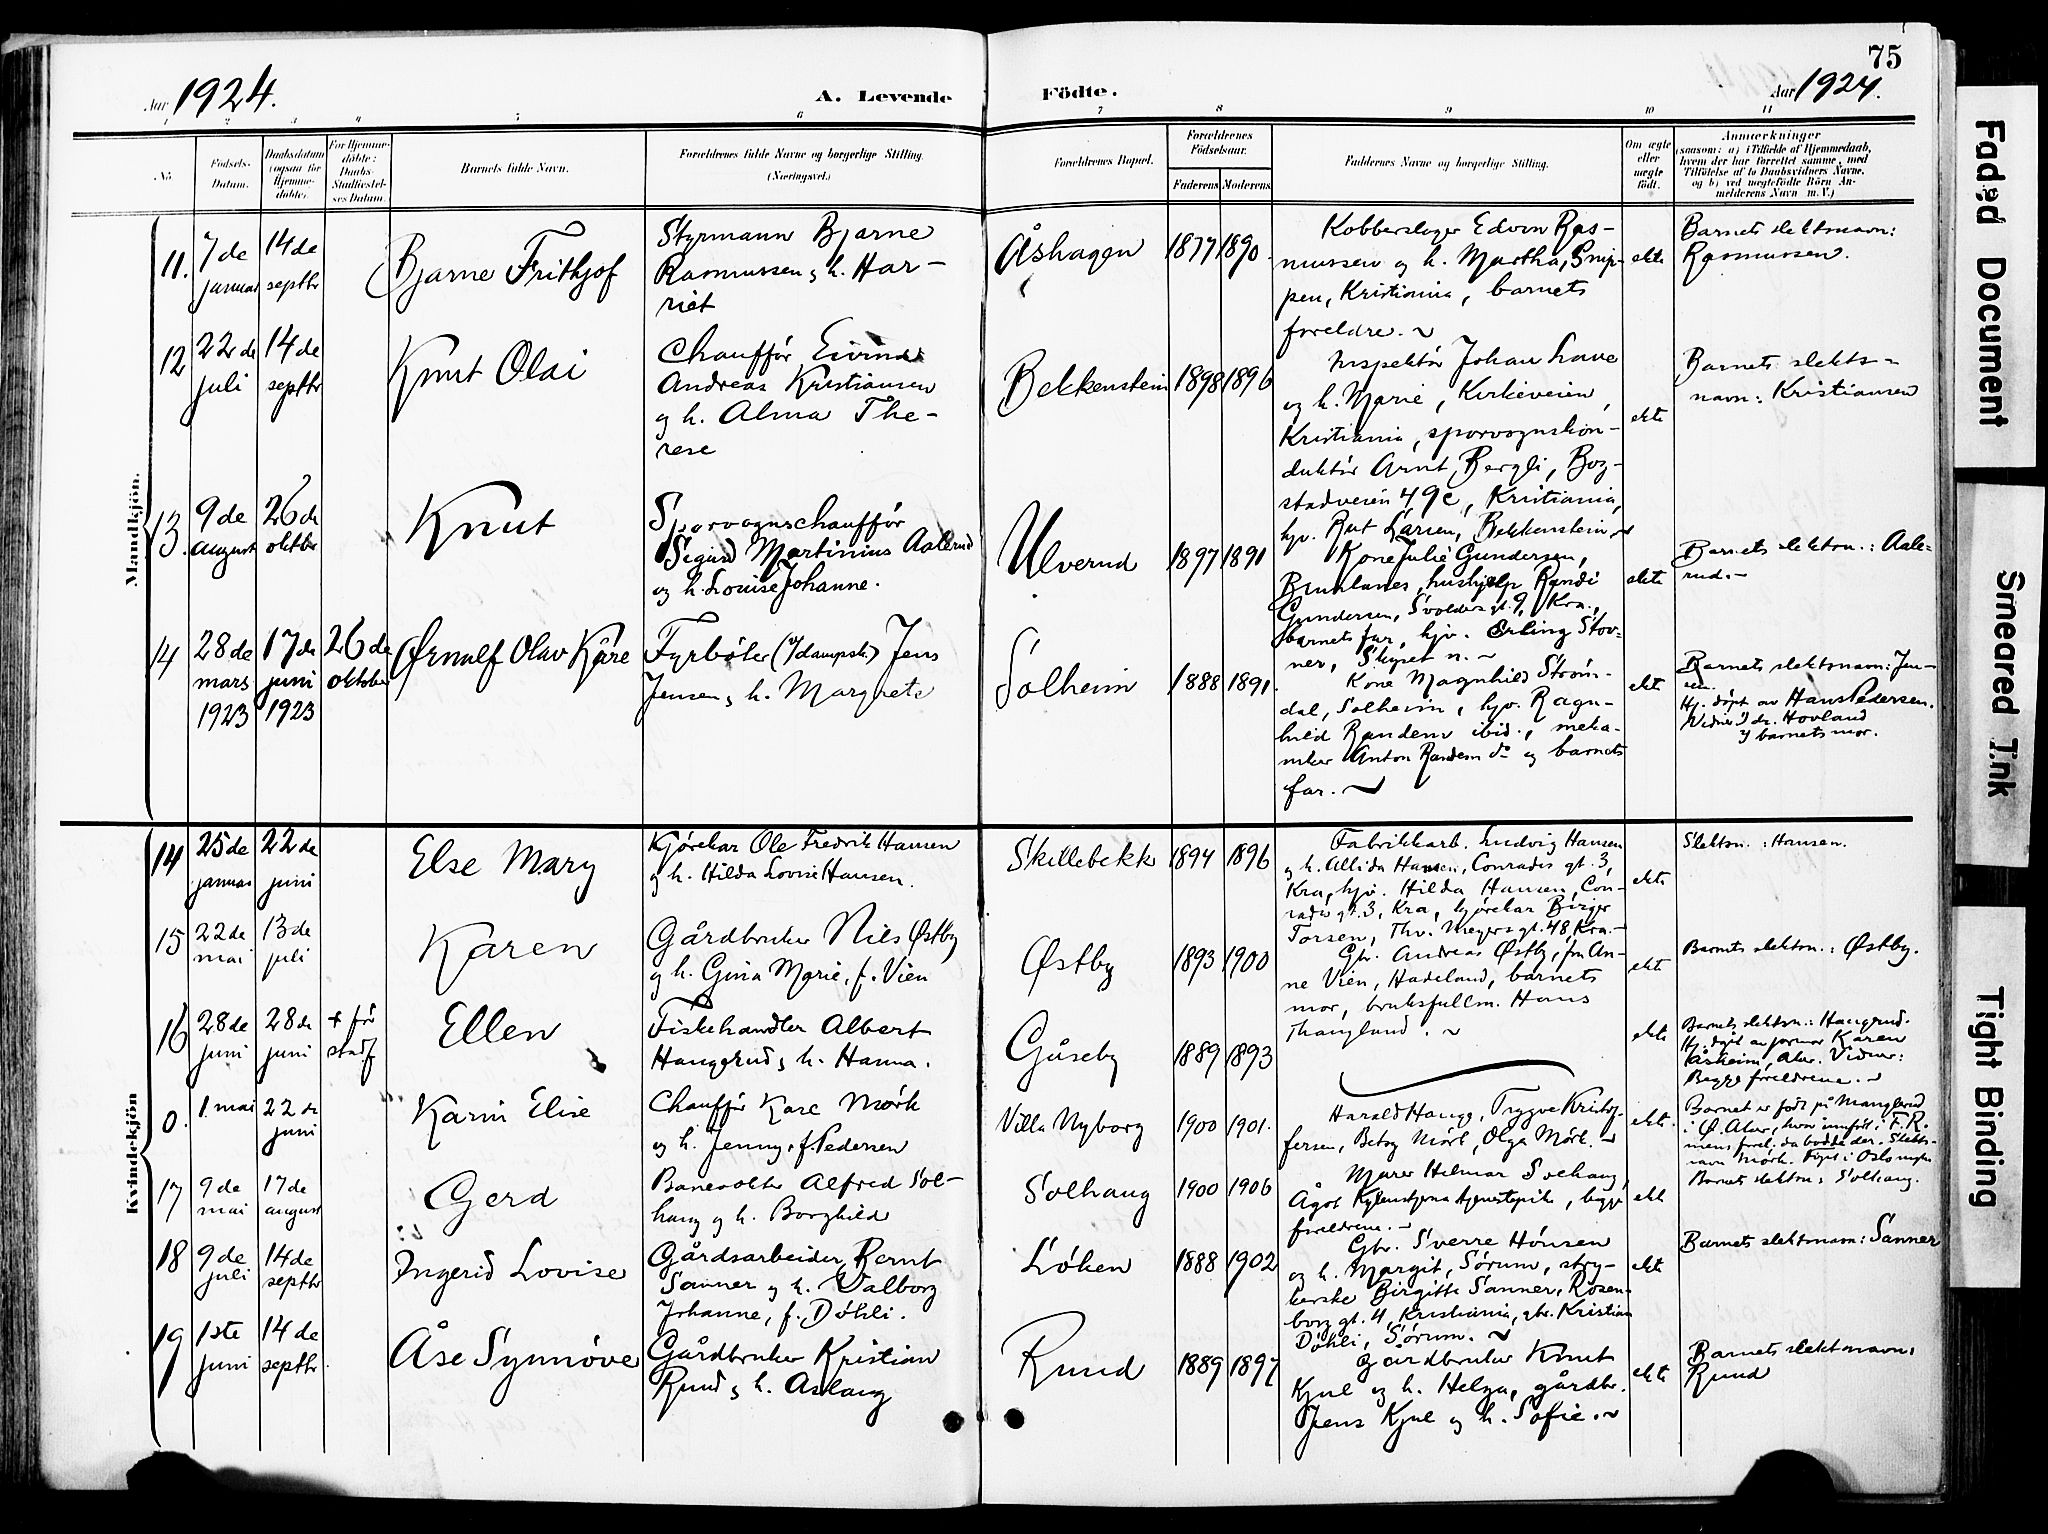 75
Aar 1924. A. Levende Födte. Aar 1924.
1 2 3 4 5 6 7 8 9 10 11
No
Födsels-
Datum.
Daabsdatum
(ogsaa for
Hjemme-
döbte).
For Hjemme-
döbte:
Daabs-
Stadfæstel-
ses Datum.
Barnets fulde Navn.
Forældrenes fulde Navne og borgerlige Stilling.
(Næringsvei.)
Forældrenes Bopæl.
Forældrenes
Födselsaar.
Faderens Moderens
Faddernes Navne og borgerlige Stilling.
Om ægte
eller
uægte
födt.
Anmærkninger
(saasom: a) i Tilfælde af Hjemmedaab,
hvem der har forrettet samme, med
Tilföielse af to Daabsvidners Navne,
og b) ved uægtefödte Börn An-
melderens Navn m. V.)
Mandkjön.
11.
7de
januar
14de
septbr
Bjarne Frithjof
Styrmann Bjarne
Rasmussen & h. Har-
riet
Åshagen
1877 1890.
Kobberslager Edvin Ras-
mussen og h. Martha, Grip-
pen, Kristiania, barnets
foreldre. ~
ekte
Barnets slektsnavn:
Rasmussen.
12
22de
juli
14de
septbr
Knut Olai
Chauffør Eivind
Andreas Kristiansen
og h. Alma The-
rese
Bekkenstein
1898 1896
Inspektør Johan Lave
og h. Marie, Kirkeveien,
Kristiania, sporvognskon-
duktør Arnt Bergli, Bog-
stadveien 49c, Kristiania,
hjv. Rut Larsen, Bekkenstein ~
ekte
Barnets slekts-
navn: Kristiansen
13.
9de
august
26de
oktbr
Knut
Sporvognschauffør
Sigurd Martinius Aalerud
og h. Louise Johanne.
Ulverud
1897 1891
Kone Julie Gundersen,
hushjelp Randi
Gundersen, Svoldersgt. 9, Kra.,
barnets far, hjv. Erling Stov-
ner, n. ~
ekte
Barnets slektsn.: Aale-
rud. -
14
28de
mars
1923
17de
juni
1923
26de
oktober
Ørnulf Olav Kåre
Fyrbøter (i/dampsk.) Jens
Jensen & h. Margrete
Solheim
1888 1891.
Kone Magnhild Strøm-
dal, Solheim, hjv. Ragn-
hild Randem ibid., meka-
niker Anton Randem do og barnets
far. ~
ekte
Barnets slektsnavn: Jen-
sen.
Hj. døpt av Hans Pedersen.
Vidner: J. dr. Hovland
og barnets mor.
Kvindekjön
14
25de
januar
22de
juni
Else Mary
Kjørekar Ole Fredrik Hansen
og h. Hilda Lovise Hansen.
Skillebekk
1894 1896
Fabrikkarb. Ludvig Hansen
og h. Allida Hansen, Conradis gt. 3,
Kra, hjv. Hilda Hansen, Con-
radis gt. 3, Kra, kjørekar Birger
Torsen, Thv. Meyers gt. 48, Kra. -
ekte
Slektsn.: Hansen.
15
22de
mai
13de
juli
Karen
Gårdbruker Nils Østby
og h. Gina Marie, f. Vien
Østby
1893 1900
Gbr. Andreas Østby, frk An-
ne Vien, Hadeland, barnets
mor, bruksfullm. Hans
Thangland. ~
ekte
Barnets slektsn.: Østby.
16
28de
juni
28de
juni
+ før
stadf
Ellen
Fiskehandler Albert
Haugerud & h. Hanna.
Gåseby
1889 1893
ekte
Barnets slektsn.: Haugrud.
Hj. døpt av jormor Karen
Åsheim, Aker. Vidner:
Begge foreldrene. ~
0.
1. mai
22de
juni
Karin Elise
Chauffør Kåre Mørk
og h. Jenny, f. Pedersen
Villa Nyborg
1900 1901.
Harald Haugg, Trygve Kristof-
fersen, Betsy Mørk, Olga Mørk. ~
ekte.
Barnet er født på Manglerud
i Ø. Aker, hvor innført i F. R.
mens forel. da bodde der. Slekts-
navn Mørk.
17
9de
mai
17de
august
Gerd
Banevokter Alfred Sol-
haug og h. Borghild
Solhaug
1900 1906
Murer Helmar Solhaug,
Ågot tjenestepike, begge
foreldrene. ~
ekte
Barnets slektsn: Solhaug.
18
9de
juli
14de
septbr
Ingerid Lovise
Gårdsarbeider Bernt
Sanner og h. Valborg
Johanne, f. Døhli.
Løken
1888 1902
Gbr. Sverre Hønsen
og h. Margit, Sørum, stry-
kerske Birgitte Sanner, Rosen-
borg gt. 4, Kristiania, gbr. Kristian
Døhli, Sørum. ~
ekte
Barnets slektsnavn: Sanner
19
1ste
juni
14de
septbr.
Åse Synnøve
Gårdbruker Kristian
Ruud & h. Aslaug
Ruud
1889 1897
Gårdbruker Knut
Kjul og h. Helga, gårdbr.
Jens Kjul og h. Sofie. ~
ekte
Barnets slektsnavn:
Ruud
Faded Document
Smeared Ink
Tight Binding